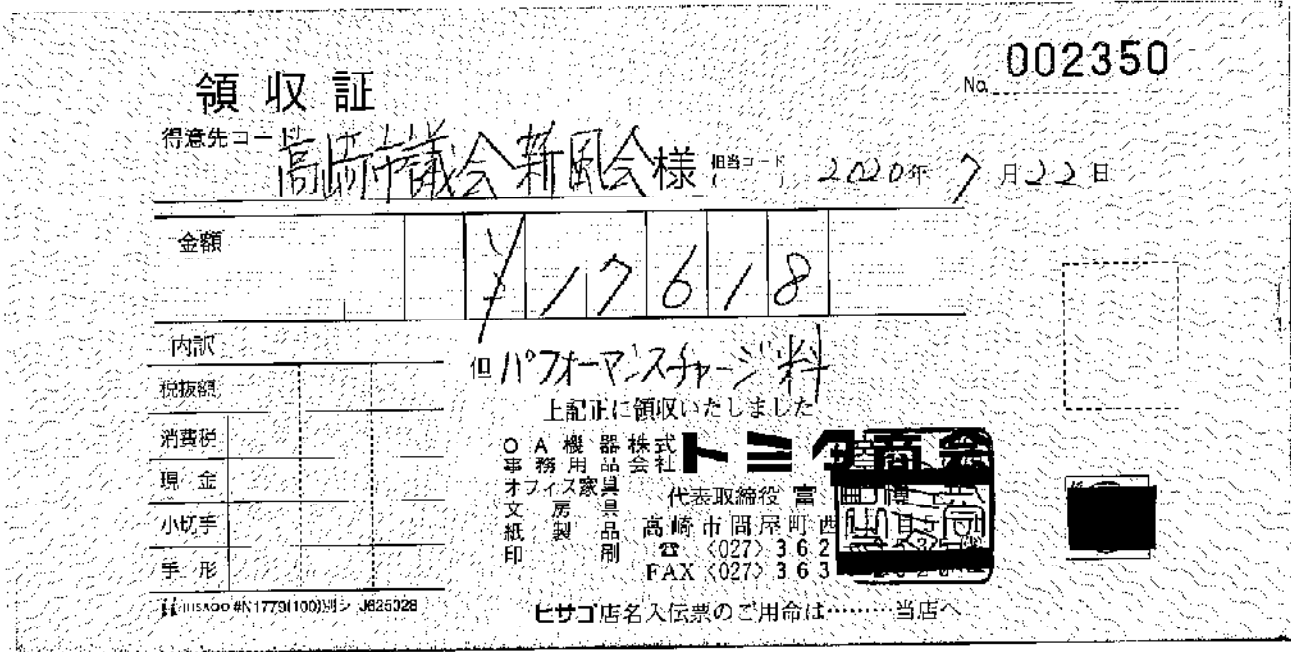 No. 002350
領収証
得意先コード
高崎市議会新風会様 担当コード 2020年 7月22日
金額 ¥17618
内訳
但 パフォーマンスチャージ料
税抜額
上記正に領収いたしました
消費税
現金
小切手
手形
OA機器
事務用品
オフィス家具
文房具
紙製品
印刷
株式会社 トミタ商会
代表取締役 富
高崎市問屋町西
☎ (027) 362
FAX (027) 363
HISAGO #N1779(100)別シ J625328
ヒサゴ店名入伝票のご用命は………当店へ